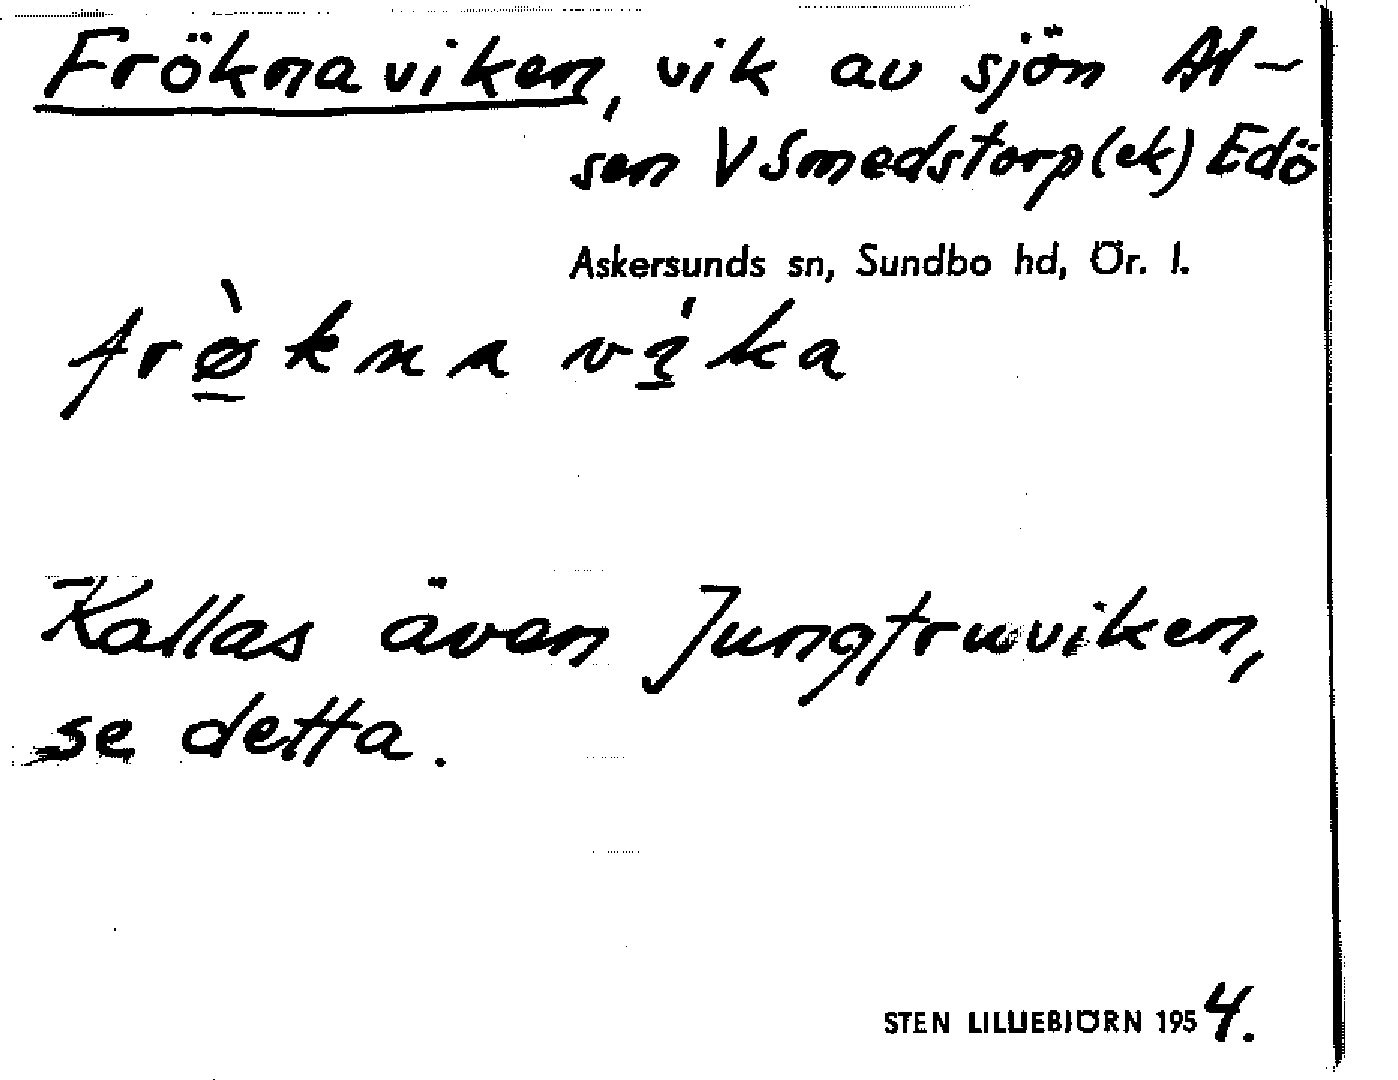 Fröknaviken, vik av sjön Al-
sen V Smedstorp (ek) Edö
Askersunds sn, Sundbo hd, Ör. l.
frø̀kna vi̇́ka
Kallas även Jungfruviken,
se detta.
STEN LILLIEBJÖRN 1954.